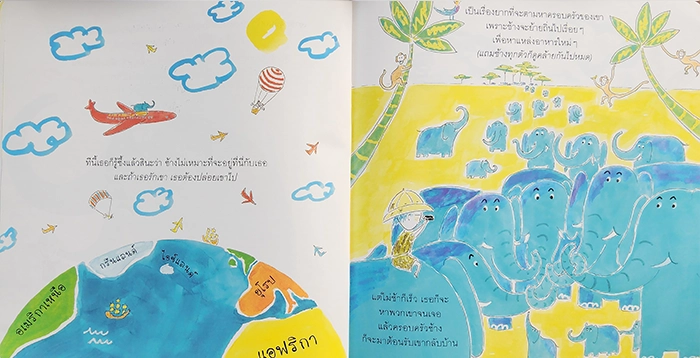 ทีนี้เธอก็รู้ซึ้งแล้วสินะว่า ช้างไม่เหมาะที่จะอยู่ที่นี่กับเธอ
และถ้าเธอรักเขา เธอต้องปล่อยเขาไป
อเมริกาเหนือ
กรีนแลนด์
ไอซ์แลนด์
ยุโรป
แอฟริกา
เป็นเรื่องยากที่จะตามหาครอบครัวของเขา
เพราะช้างจะย้ายถิ่นไปเรื่อยๆ
เพื่อหาแหล่งอาหารใหม่ๆ
(แถมช้างทุกตัวก็ดูคล้ายกันไปหมด)
แต่ไม่ช้าก็เร็ว เธอก็จะ
หาพวกเขาจนเจอ
แล้วครอบครัวช้าง
ก็จะมาต้อนรับเขากลับบ้าน